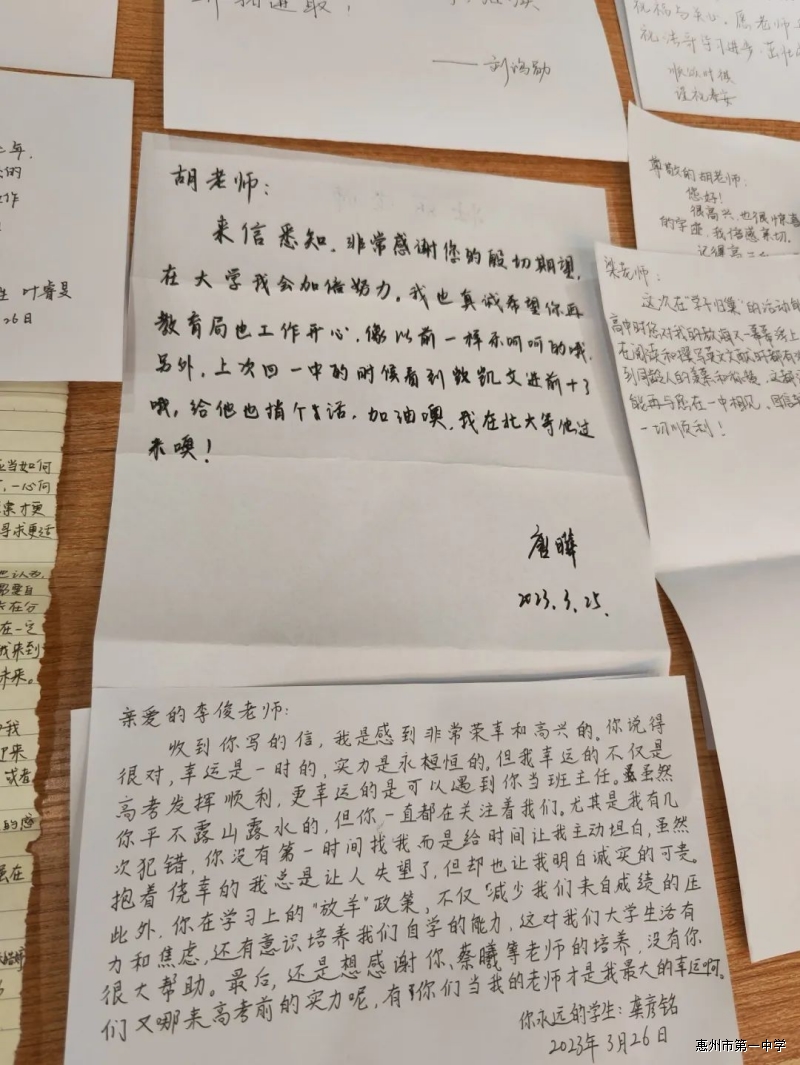 ——刘鸿勋
祝福与关心。愿老师
顺颂时祺
谨祝春安
生 叶睿旻
26日
尊敬的胡老师：
您好！
很高兴，也很惊喜
的字迹，我倍感亲切。
记得高
梁老师：
这次在“学子归集”的活动
高中时您对我的教诲又一幕幕浮上
一切顺利！
胡老师：
来信悉知，非常感谢您的殷切期望，
在大学我会加倍努力。我也真诚希望你再
教育局也工作开心，像以前一样乐呵呵的哦，
另外，上次回一中的时候看到凯文进前十了
哦，给他也捎个话，加油噢，我在北大等他过
来噢！
唐晔
2023.3.25.
亲爱的李俊老师：
收到你写的信，我是感到非常荣幸和高兴的。你说得
很对，幸运是一时的，实力是永恒的，但我幸运的不仅是
高考发挥顺利，更幸运的是可以遇到你当班主任。虽然
你平不露山露水的，但你一直都在关注着我们。尤其是我有几
次犯错，你没有第一时间找我而是给时间让我主动坦白，虽然
抱着侥幸的我总是让人失望了，但却也让我明白诚实的可贵。
此外，你在学习上的“放羊”政策，不仅减少我们来自成绩的压
力和焦虑，还有意识培养我们自学的能力，这对我们大学生活有
很大帮助。最后，还是想感谢你、蔡曦等老师的培养，没有你
们又哪来高考前的实力呢，有你们当我的老师才是我最大的幸运啊。
你永远的学生：龚彦铭
2023年3月26日
应当如何
，一心向
寻求更适
在一定
我来到
未来。
或者
惠州市第一中学